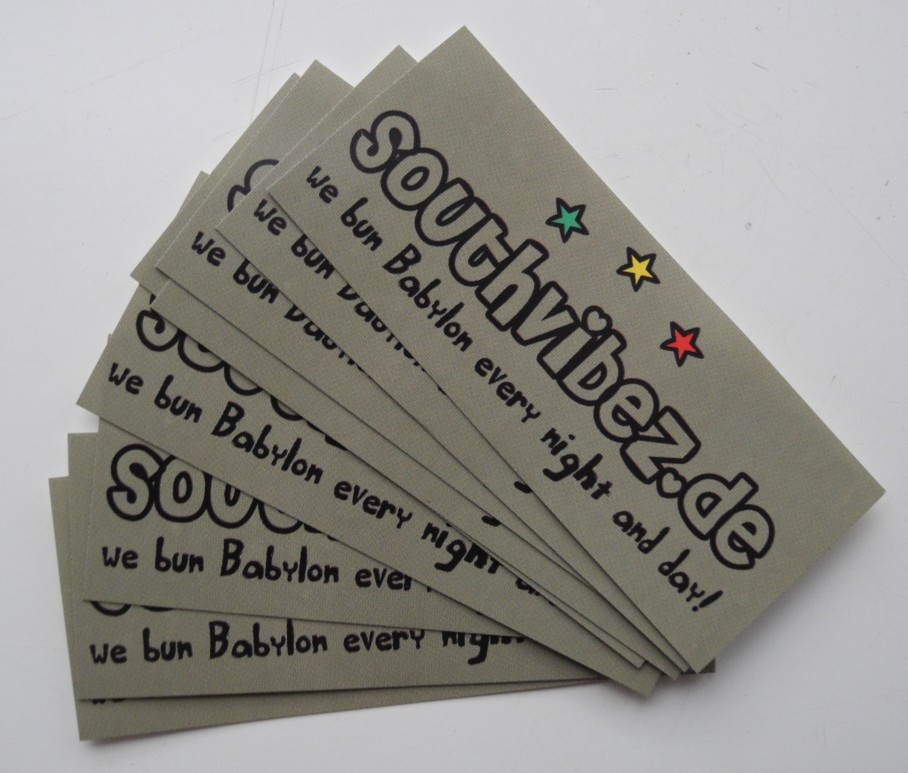 southvibez.de
we bun Babylon every night and day!
we bun Babylon
we bun Babylon
we bun Babylon every night
sou
we bun Babylon ever
we bun Babylon every night
we